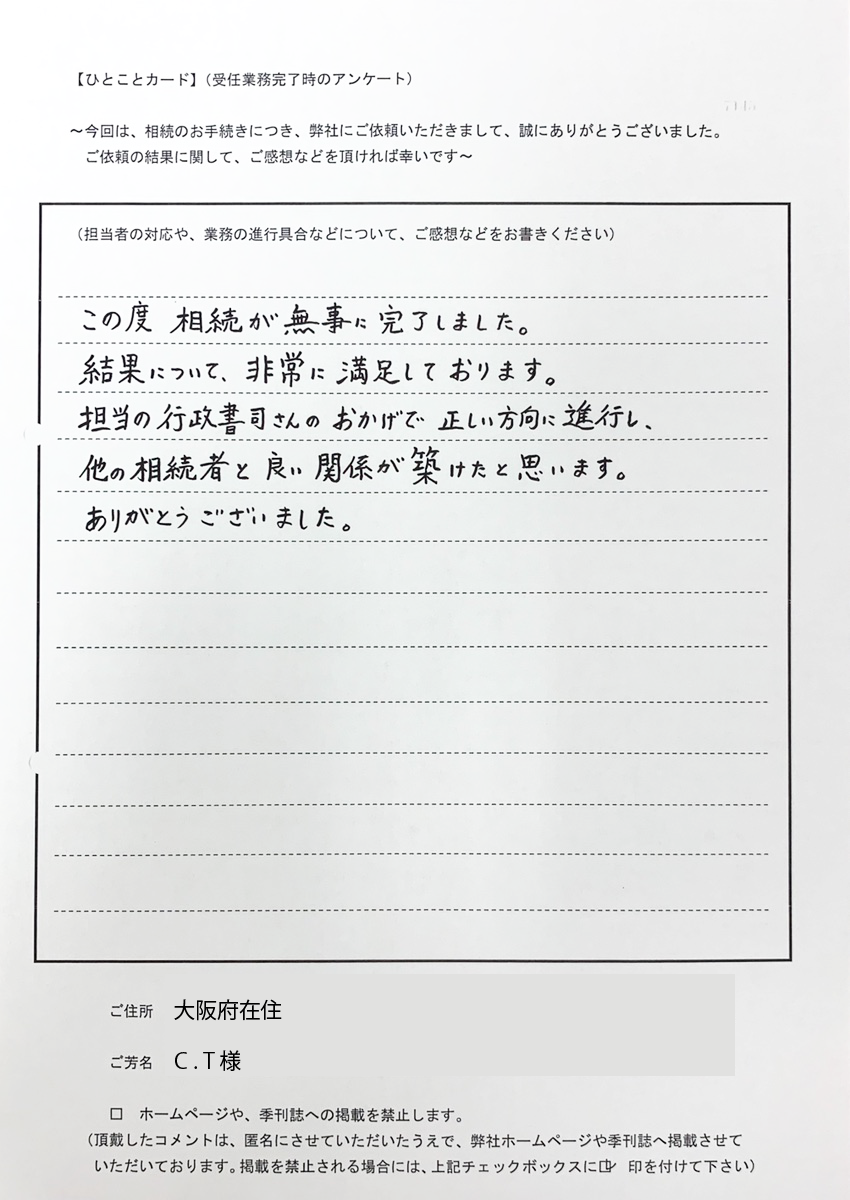 【ひとことカード】（受任業務完了時のアンケート）
～今回は、相続のお手続きにつき、弊社にご依頼いただきまして、誠にありがとうございました。
ご依頼の結果に関して、ご感想などを頂ければ幸いです～
（担当者の対応や、業務の進行具合などについて、ご感想などをお書きください）
この度 相続が無事に完了しました。
結果について、非常に満足しております。
担当の行政書司さんのおかげで正しい方向に進行し、
他の相続者と良い関係が築けたと思います。
ありがとうございました。
ご住所 大阪府在住
ご芳名 C.T様
□ ホームページや、季刊誌への掲載を禁止します。
（頂戴したコメントは、匿名にさせていただいたうえで、弊社ホームページや季刊誌へ掲載させて
いただいております。掲載を禁止される場合には、上記チェックボックスに☑ 印を付けて下さい）